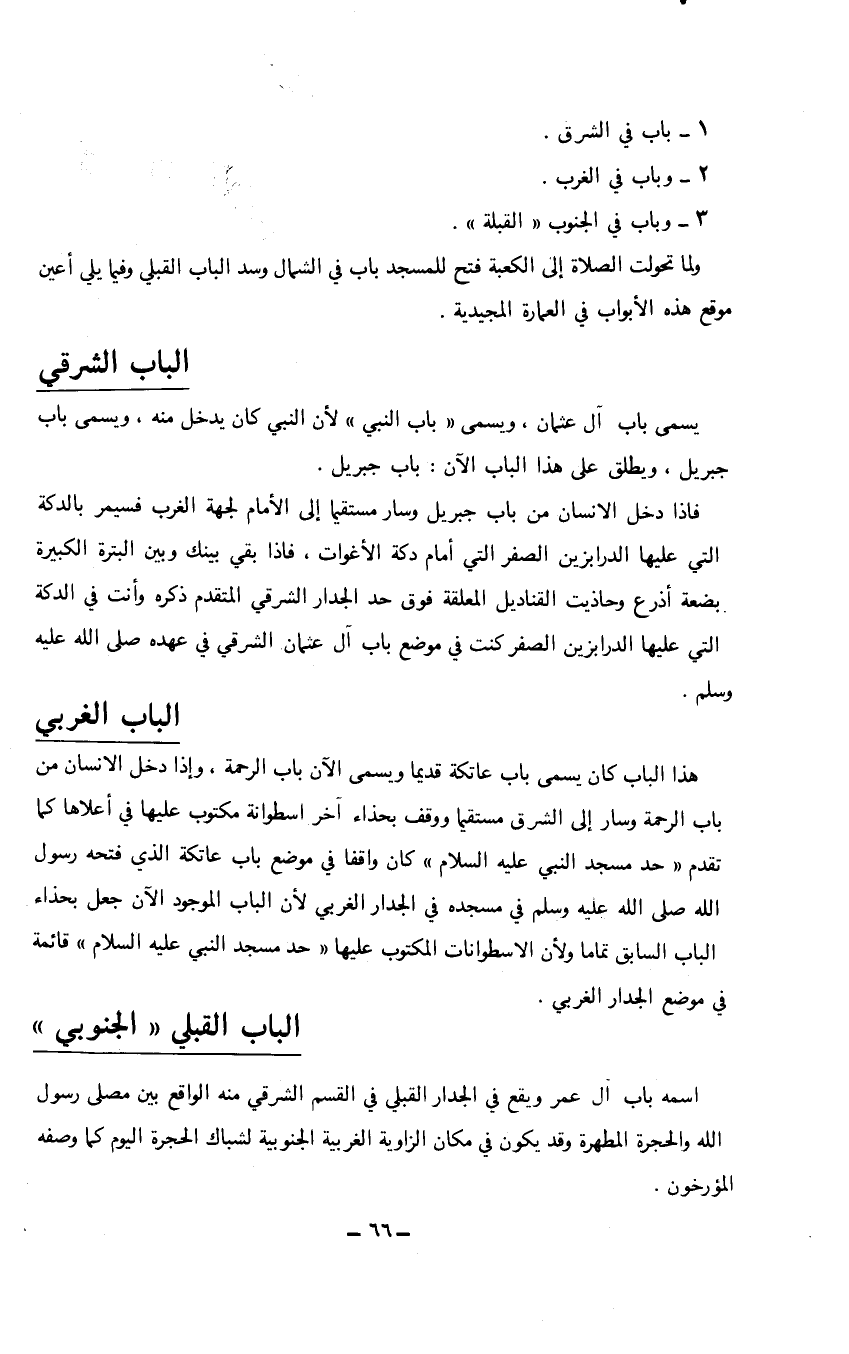 ١ ـ باب في الشرق .
٢ ـ وباب في الغرب .
٣ ـ وباب في الجنوب « القبلة » .
ولما تحولت الصلاة إلى الكعبة فتح للمسجد باب في الشمال وسد الباب القبلي وفيما يلي أعين
موقع هذه الأبواب في العمارة المجيدية .
الباب الشرقي
يسمى باب آل عثمان ، ويسمى « باب النبي » لأن النبي كان يدخل منه ، ويسمى باب
جبريل ، ويطلق على هذا الباب الآن : باب جبريل .
فاذا دخل الانسان من باب جبريل وسار مستقيما إلى الأمام لجهة الغرب فسيمر بالدكة
التي عليها الدرابزين الصفر التي أمام دكة الأغوات ، فاذا بقي بينك وبين البترة الكبيرة
بضعة أذرع وحاذيت القناديل المعلقة فوق حد الجدار الشرقي المتقدم ذكره وأنت في الدكة
التي عليها الدرابزين الصفر كنت في موضع باب آل عثمان الشرقي في عهده صلى الله عليه
وسلم .
الباب الغربي
هذا الباب كان يسمى باب عاتكة قديما ويسمى الآن باب الرحمة ، وإذا دخل الانسان من
باب الرحمة وسار إلى الشرق مستقيما ووقف بحذاء آخر اسطوانة مكتوب عليها في أعلاها كما
تقدم « حد مسجد النبي عليه السلام » كان واقفا في موضع باب عاتكة الذي فتحه رسول
الله صلى الله عليه وسلم في مسجده في الجدار الغربي لأن الباب الموجود الآن جعل بحذاء
الباب السابق تماما ولأن الاسطوانات المكتوب عليها « حد مسجد النبي عليه السلام » قائمة
في موضع الجدار الغربي .
الباب القبلي « الجنوبي »
اسمه باب آل عمر ويقع في الجدار القبلي في القسم الشرقي منه الواقع بين مصلى رسول
الله والحجرة المطهرة وقد يكون في مكان الزاوية الغربية الجنوبية لشباك الحجرة اليوم كما وصفه
المؤرخون .
ـ ٦٦ ـ